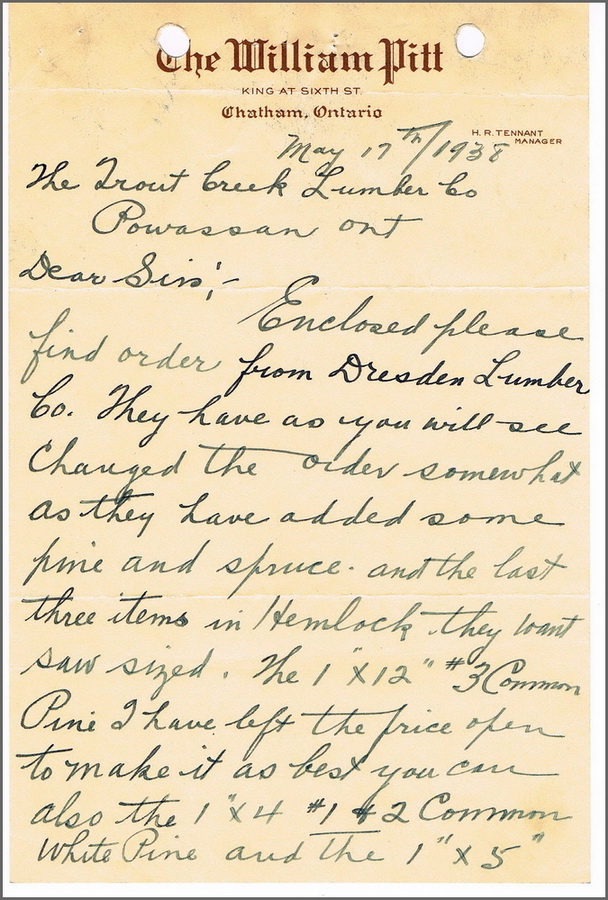 The William Pitt
KING AT SIXTH ST.
Chatham, Ontario
H. R. TENNANT
MANAGER
May 17th/1938
The Trout Creek Lumber Co
Powassan Ont
Dear Sirs;-
Enclosed please
find order from Dresden Lumber
Co. They have as you will see
Changed the order somewhat
as they have added some
pine and spruce. and the last
three items in Hemlock they want
saw sized. The 1"X12" #3 Common
Pine I have left the price open
to make it as best you can
also the 1"X4 #1 & 2 Common
White Pine and the 1" x 5"